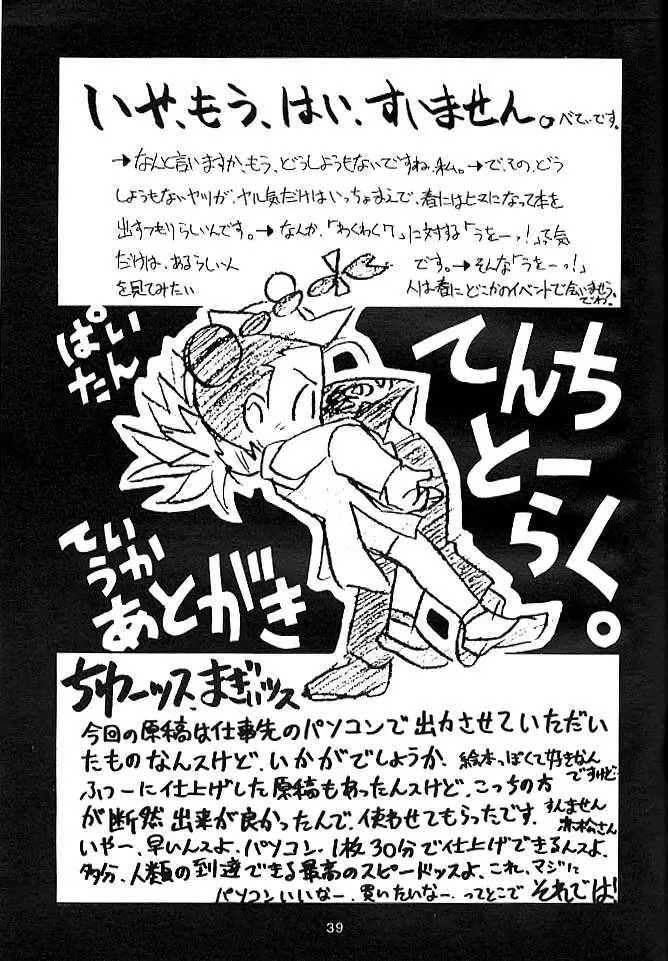 いや、もう、はい、すいません。べてぃです。
→なんと言いますか、もう、どうしようもないですね、私。→で、その、どう
しようもないヤツが、ヤル気だけはいっちょまえで、春にはヒマになって本を
出すつもりらしいんです。→なんか、「わくわく7」に対する「うをーっ!」って気
だけは、あるらしい人です。→そんな「うをーっ!」
を見てみたい人は春にどこかのイベントで会いませう。
でわ。
ぱい
たん
てんち
とーらく。
ていうか
あとがき
ちゅーッス、まぎぃッス
今回の原稿は仕事先のパソコンで出力させていただい
たものなんスけど、いかがでしょうか、絵本っぽくて好きなん
ですけど…
ふつーに仕上げした原稿もあったんスけど、こっちの方
が断然出来が良かったんで、使わせてもらったです、すんません
赤松さん
いやー、早いんスよ、パソコン、1枚30分で仕上げできるんスよ、
多分、人類の到達できる最高のスピードッスよ、これ、マジに
パソコンいいなー、買いたいなー、ってとこで それでは!
39